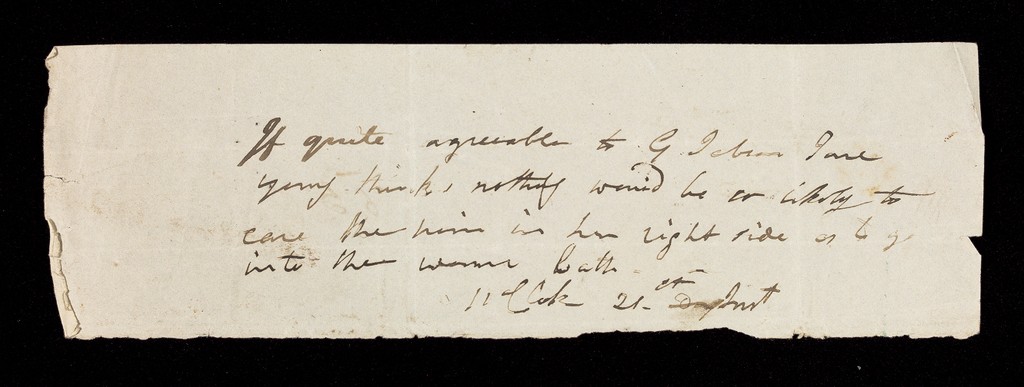 If quite agreeable to G Jane
young thinks nothing would be so likely to
cure the pain in her right side as to go
into the warm bath
11 O'Clock 21st Inst